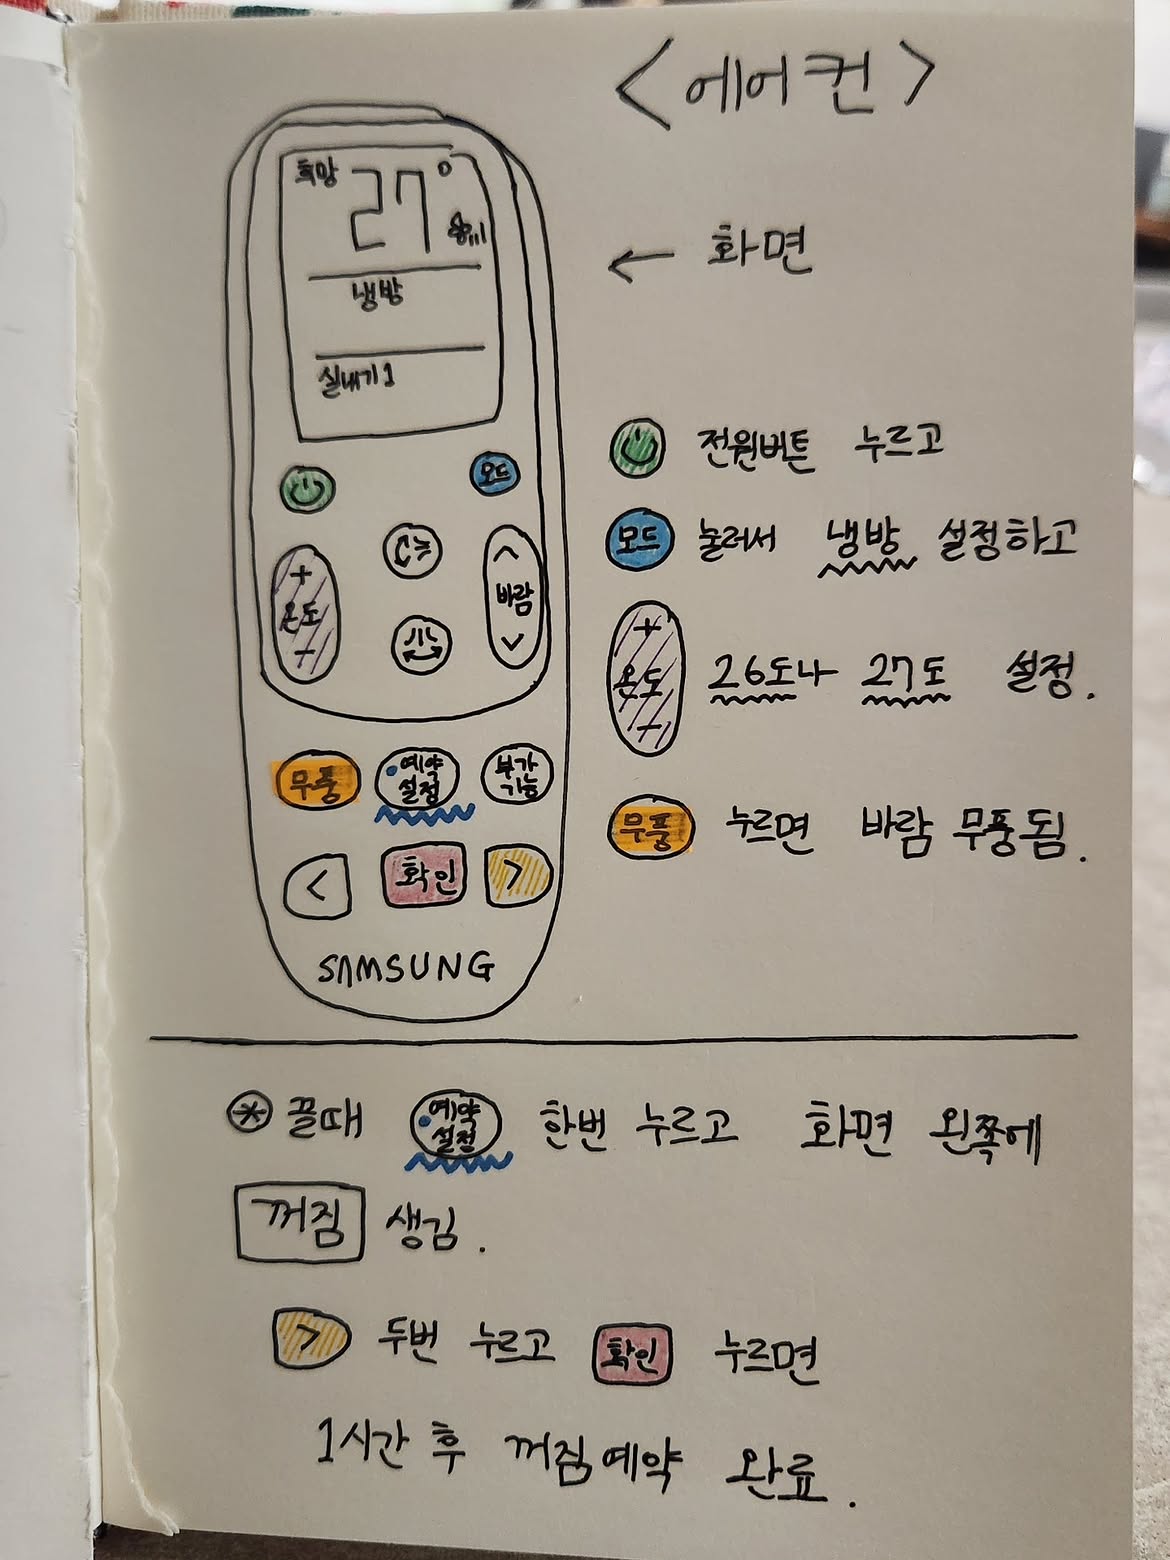 <에어컨>
희망 27°
냉방
실내기1
← 화면
모드
+ 온도 -
바람
무풍
예약 설정
부가 기능
<
확인
>
SAMSUNG
전원버튼 누르고
모드 눌러서 냉방 설정하고
+ 온도 - 26도나 27도 설정.
무풍 누르면 바람 무풍됨.
* 끌때 예약 설정 한번 누르고 화면 왼쪽에
꺼짐 생김.
> 두번 누르고 확인 누르면
1시간 후 꺼짐예약 완료.